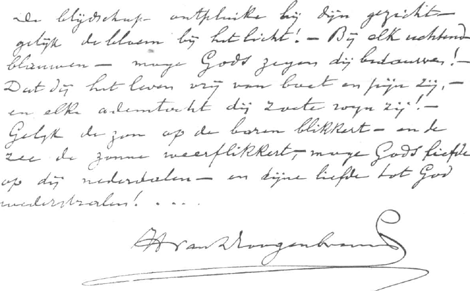 De blijdschap ontpluike bij dijn gezicht
gelijk de bloem bij het licht! – Bij elk uchtend
blauwen – moge Gods zegen dij bedauwen! –
Dat dij het leven vrij van boet en pijn zij, –
en elke ademtocht dij zoete wijn zij! –
Gelijk de zon op de baren blikkert – en de
zee de zonne weerflikkert, – moge Gods liefde
op dij nederdalen – en dijne liefde tot God
wederstralen! . . . .